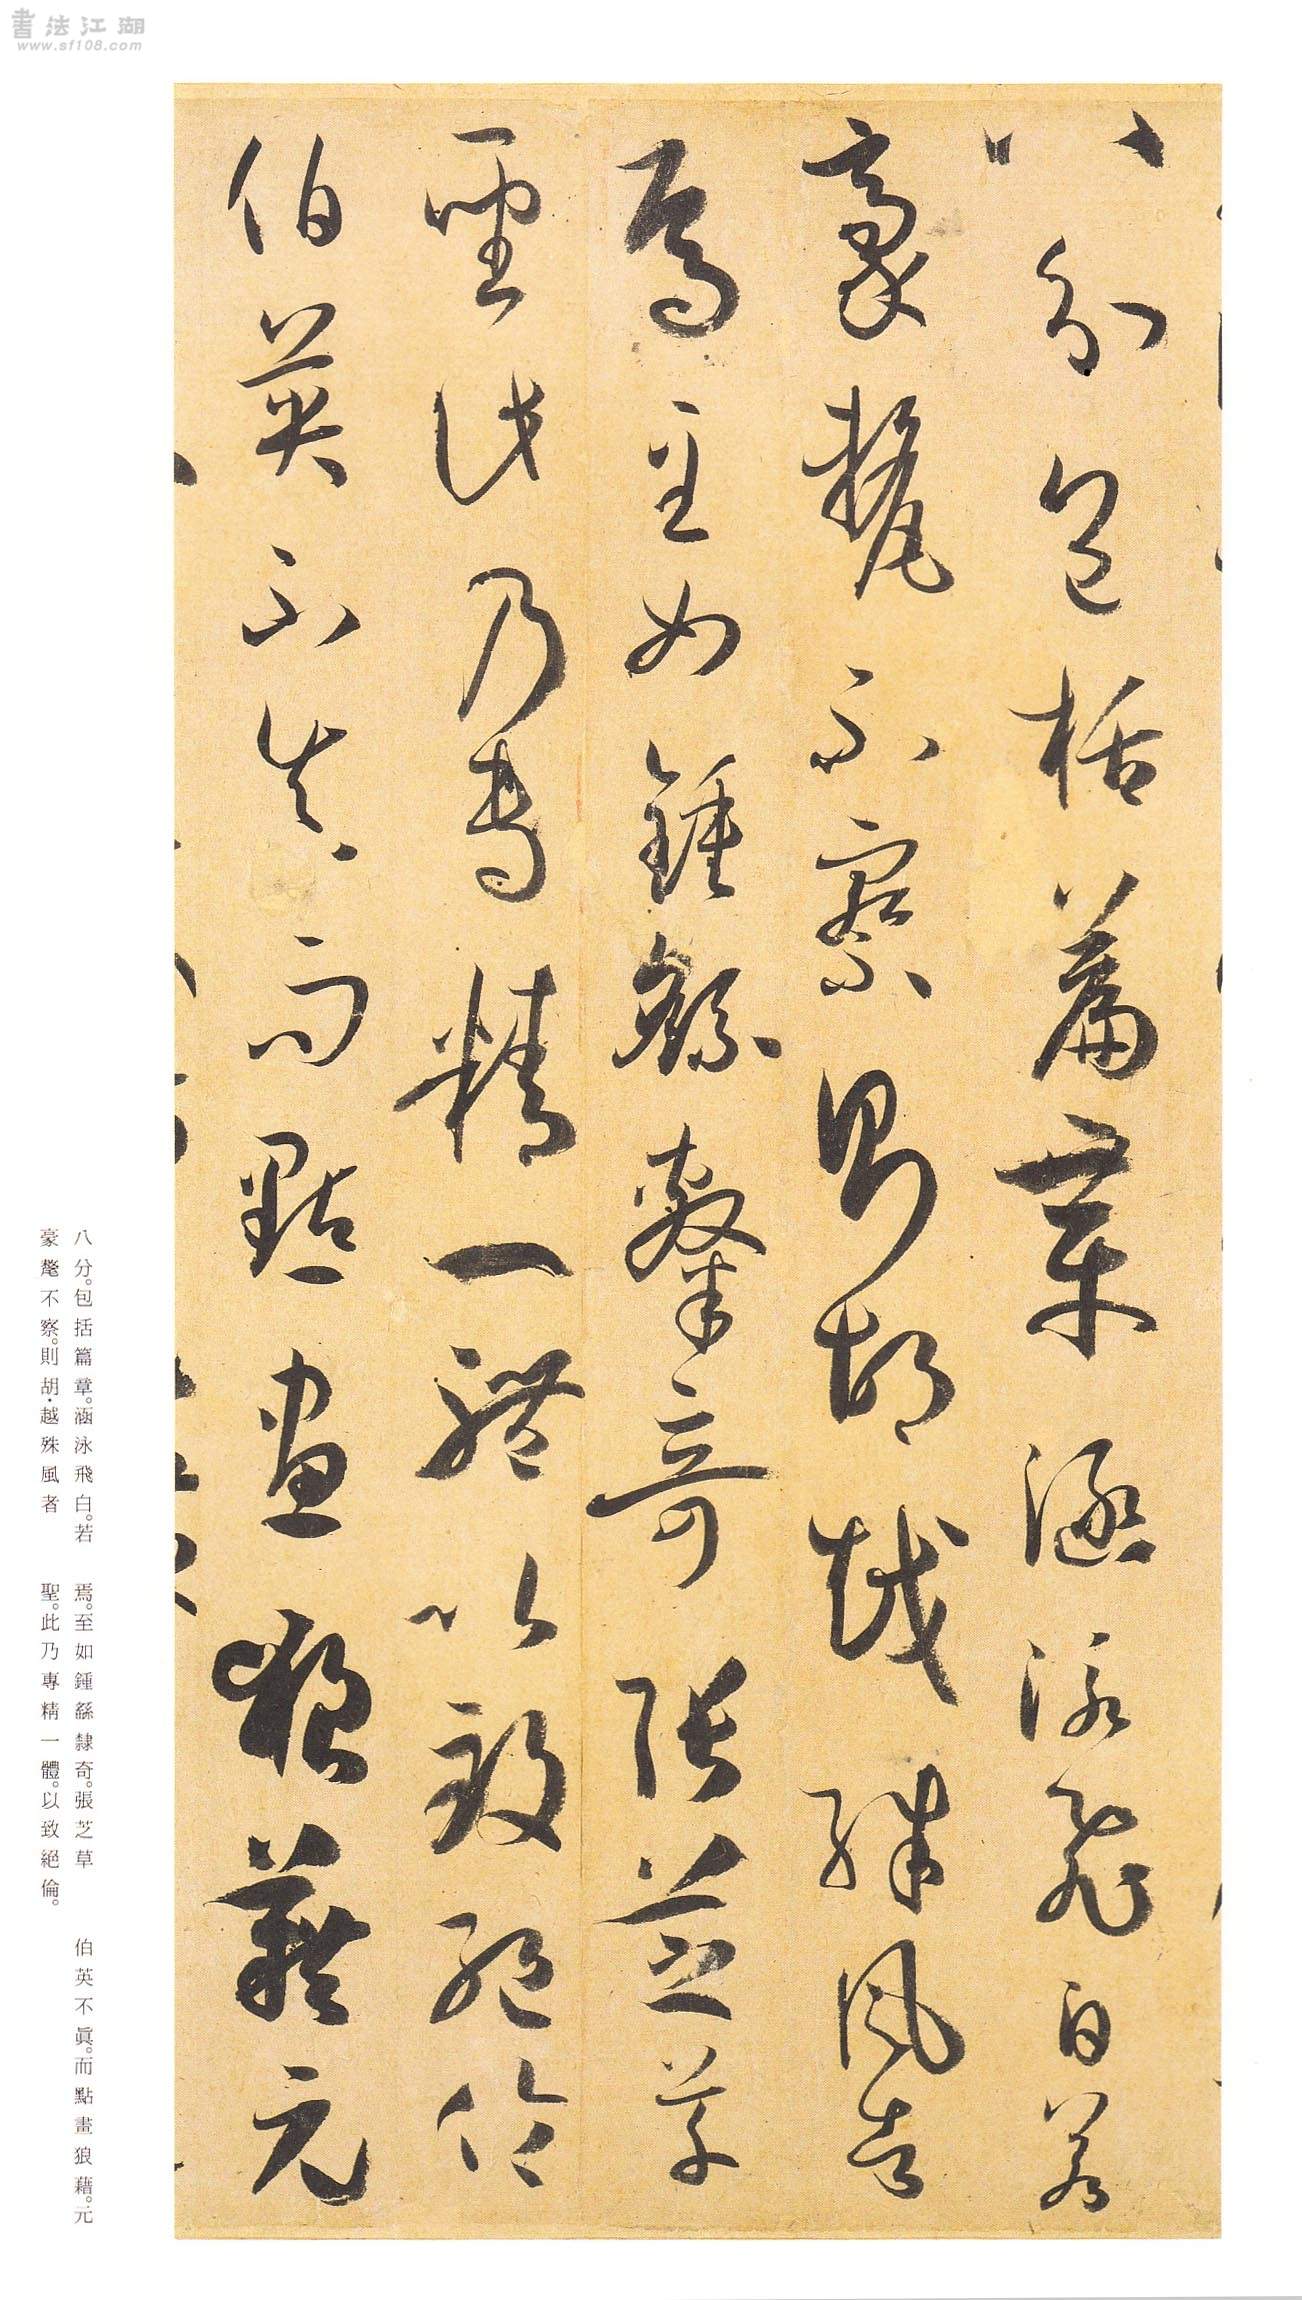 書法江湖
www.sf108.com
八分包括篇章涵泳飛白若
豪氂不察則胡越殊風者
焉至如鍾繇隸奇張芝草
聖此乃專精一體以致絕倫
伯英不真而點畫狼藉元
八分。包括篇章。涵泳飛白。若
豪氂不察。則胡・越殊風者
焉。至如鍾繇隸奇。張芝草
聖。此乃專精一體。以致絕倫。
伯英不眞。而點畫狼藉。元